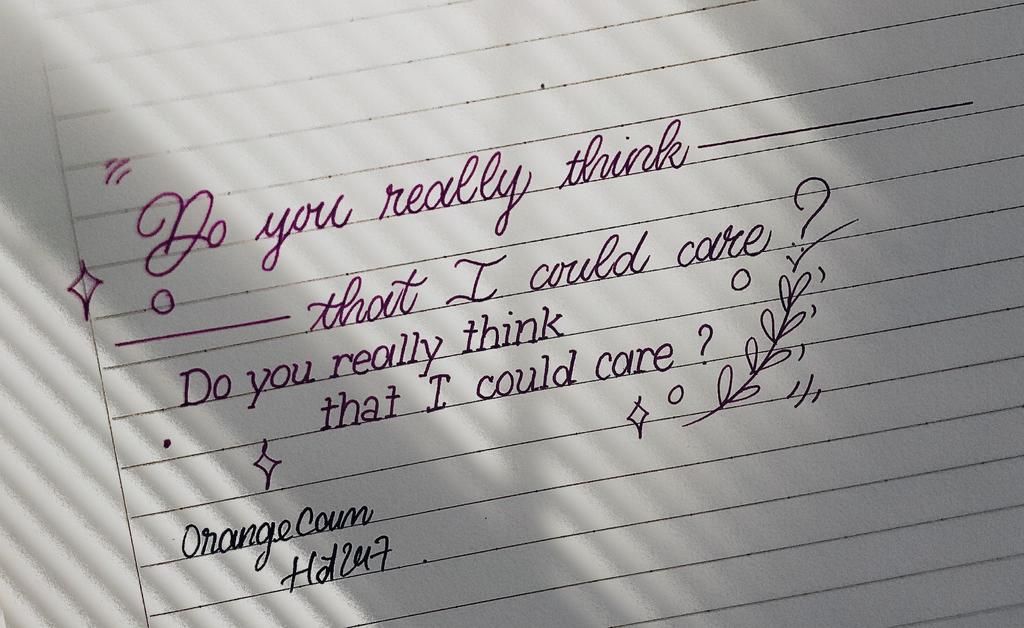 Do you really think
that I could care ?
Do you really think
that I could care ?
OrangeCoum
Hd247